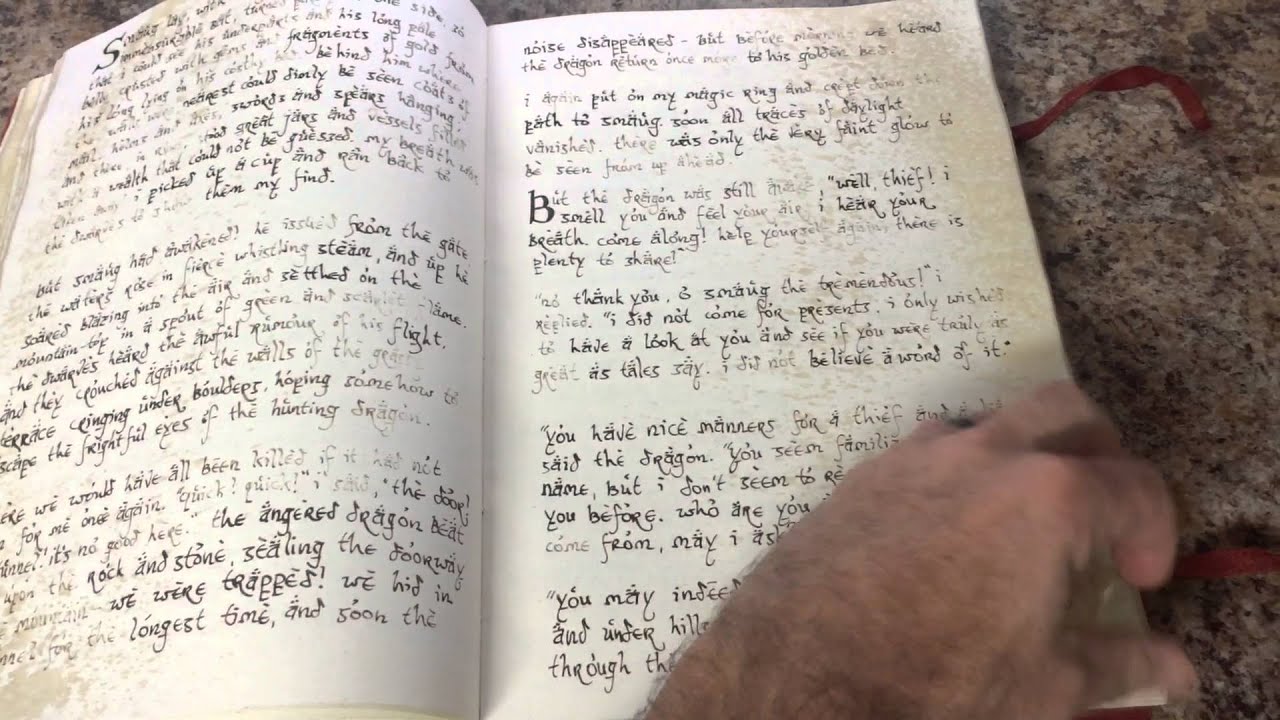 Smaug lay, with
side, so
that i could see his underparts and his long pale
belly crusted with gems and fragments of gold from
his long lying on his costly bed. behind him where
the walls were nearest could dimly be seen coats of
mail, helms and axes, swords and spears hanging;
and there in rows stood great jars and vessels filled
with a wealth that could not be guessed. my breath was
taken away. i picked up a cup and ran back to
the dwarves to show them my find.
but smaug had awakened! he issued from the gate
the waters rose in fierce whistling steam, and up he
soared blazing into the air and settled on the
mountain-top in a spout of green and scarlet flame.
the dwarves heard the awful rumour of his flight,
and they crouched against the walls of the grassy
terrace cringing under boulders, hoping somehow to
escape the frightful eyes of the hunting dragon.
there we would have all been killed if it had not
been for me once again. "quick! quick!" i said, "the door!
tunnel! it's no good here." the angered dragon beat
upon the rock and stone, sealing the doorway
mountain– we were trapped! we hid in
tunnel for the longest time, and soon the
noise disappeared – but before morning we heard
the dragon return once more to his golden bed.
i again put on my magic ring and crept down the
path to smaug. soon all traces of daylight
vanished. there was only the very faint glow to
be seen from up ahead.
But the dragon was still awake, "well, thief! i
smell you and feel your air, i hear your
breath. come along! help yourself again, there is
plenty to share!"
"no thank you, o smaug the tremendous!" i
replied. "i did not come for presents. i only wished
to have a look at you and see if you were truly as
great as tales say. i did not believe a word of it."
"you have nice manners for a thief and a
said the dragon. "you seem
name, but i don't seem to
you before. who are you
come from, may i
"you may indeed
and under
through